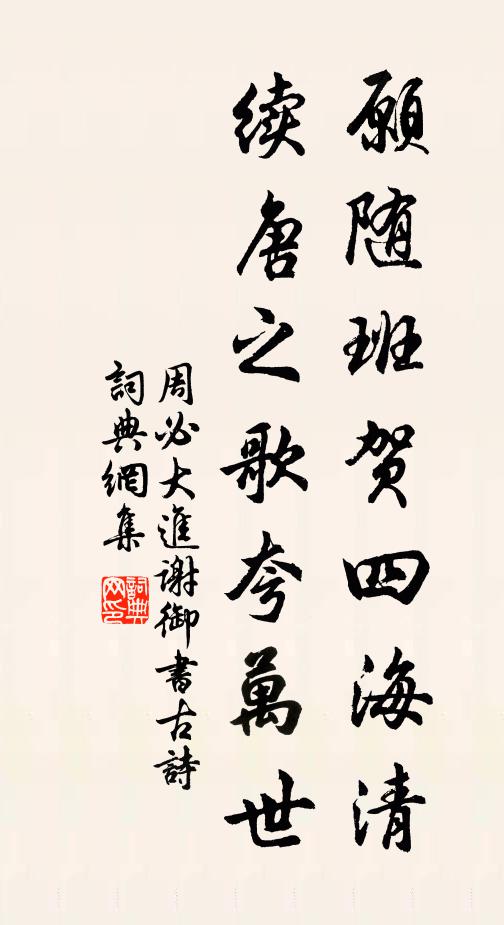 願随班贺四海清
续唐之歌夸萬世
周必大進謝御書古詩
詞典網集
詞典网印